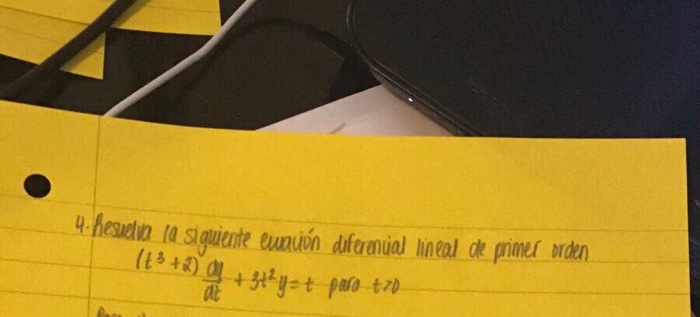 4. Resuelva la siguiente ecuación diferencial lineal de primer orden
(t³ + 2) dy/dt + 3t²y = t para t>0